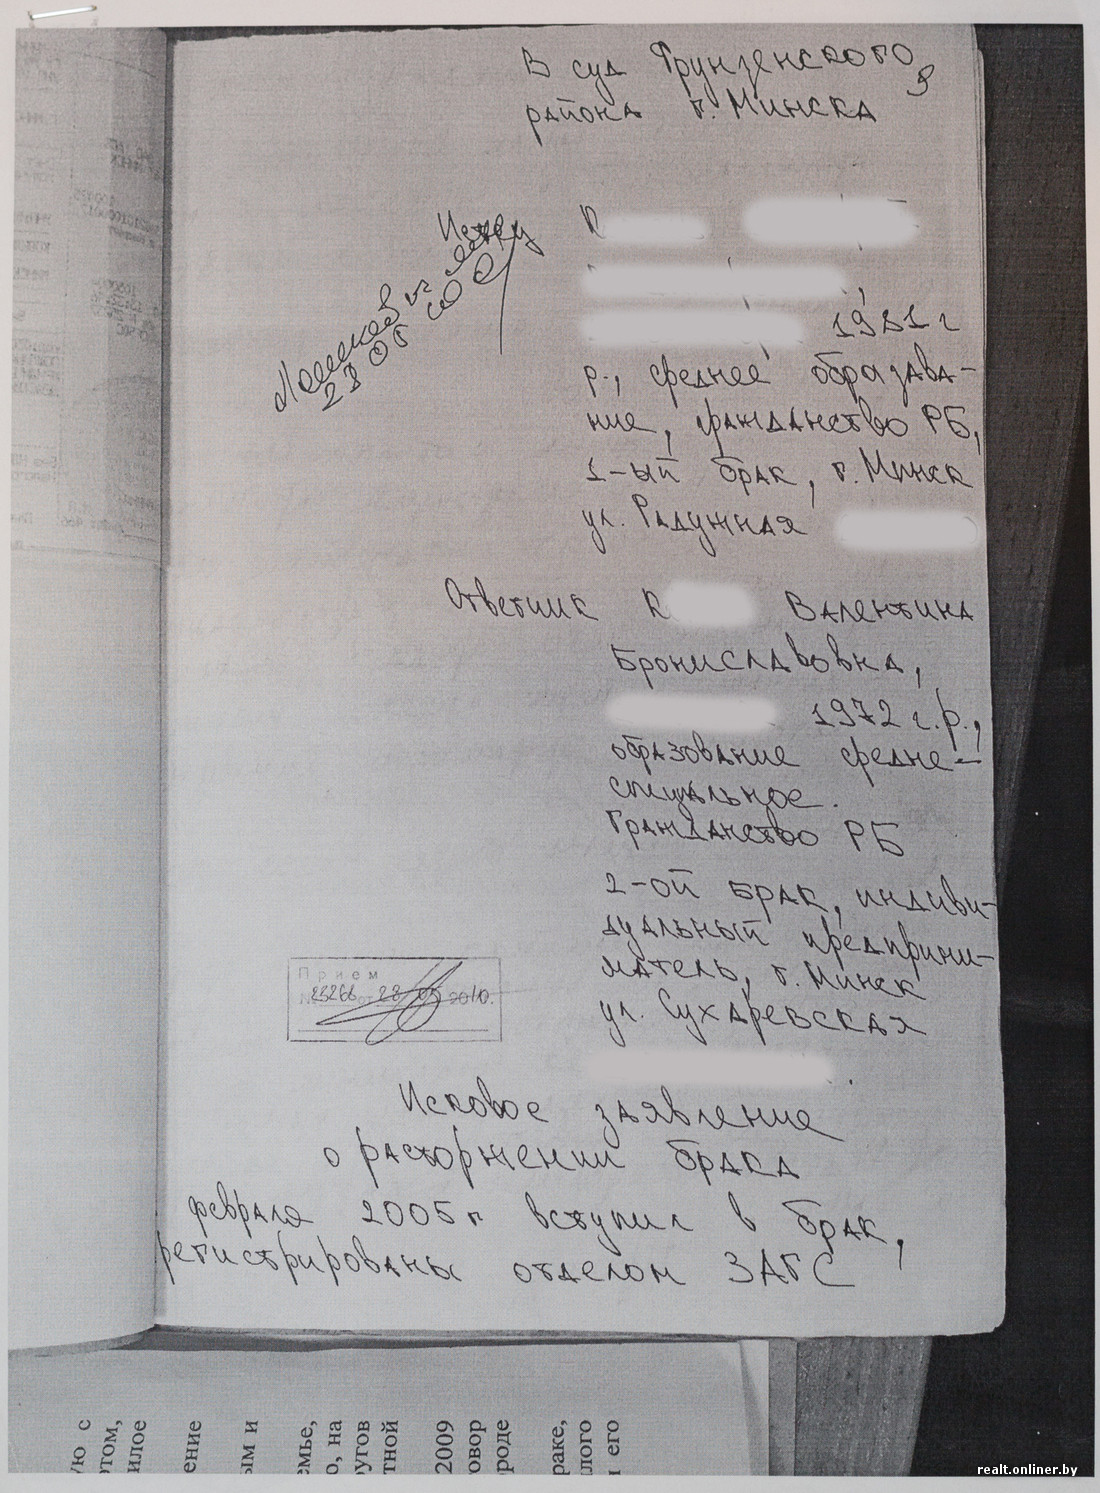 В суд Фрунзенского
района г. Минска
Истец К
1981 г
р., среднее образава-
ние, гражданство РБ,
1-ый брак, г. Минск
ул. Радужная
23 05
Ответчик К Валентина
Брониславовна,
1972 г.р.,
образование средне-
специальное.
Гражданство РБ
2-ой брак, индиви-
дуальный предприни-
матель, г. Минск
ул. Сухаревская
Прием
28 05 2010.
Исковое заявление
о расторжении брака
февраля 2005 г вступил в брак,
регистрированы отделом ЗАГС
ую с
отом,
илое
ение
ым и
емье,
о, на
ругов
тной
2009
овор
роде
раке,
лого
и его
realt.onliner.by